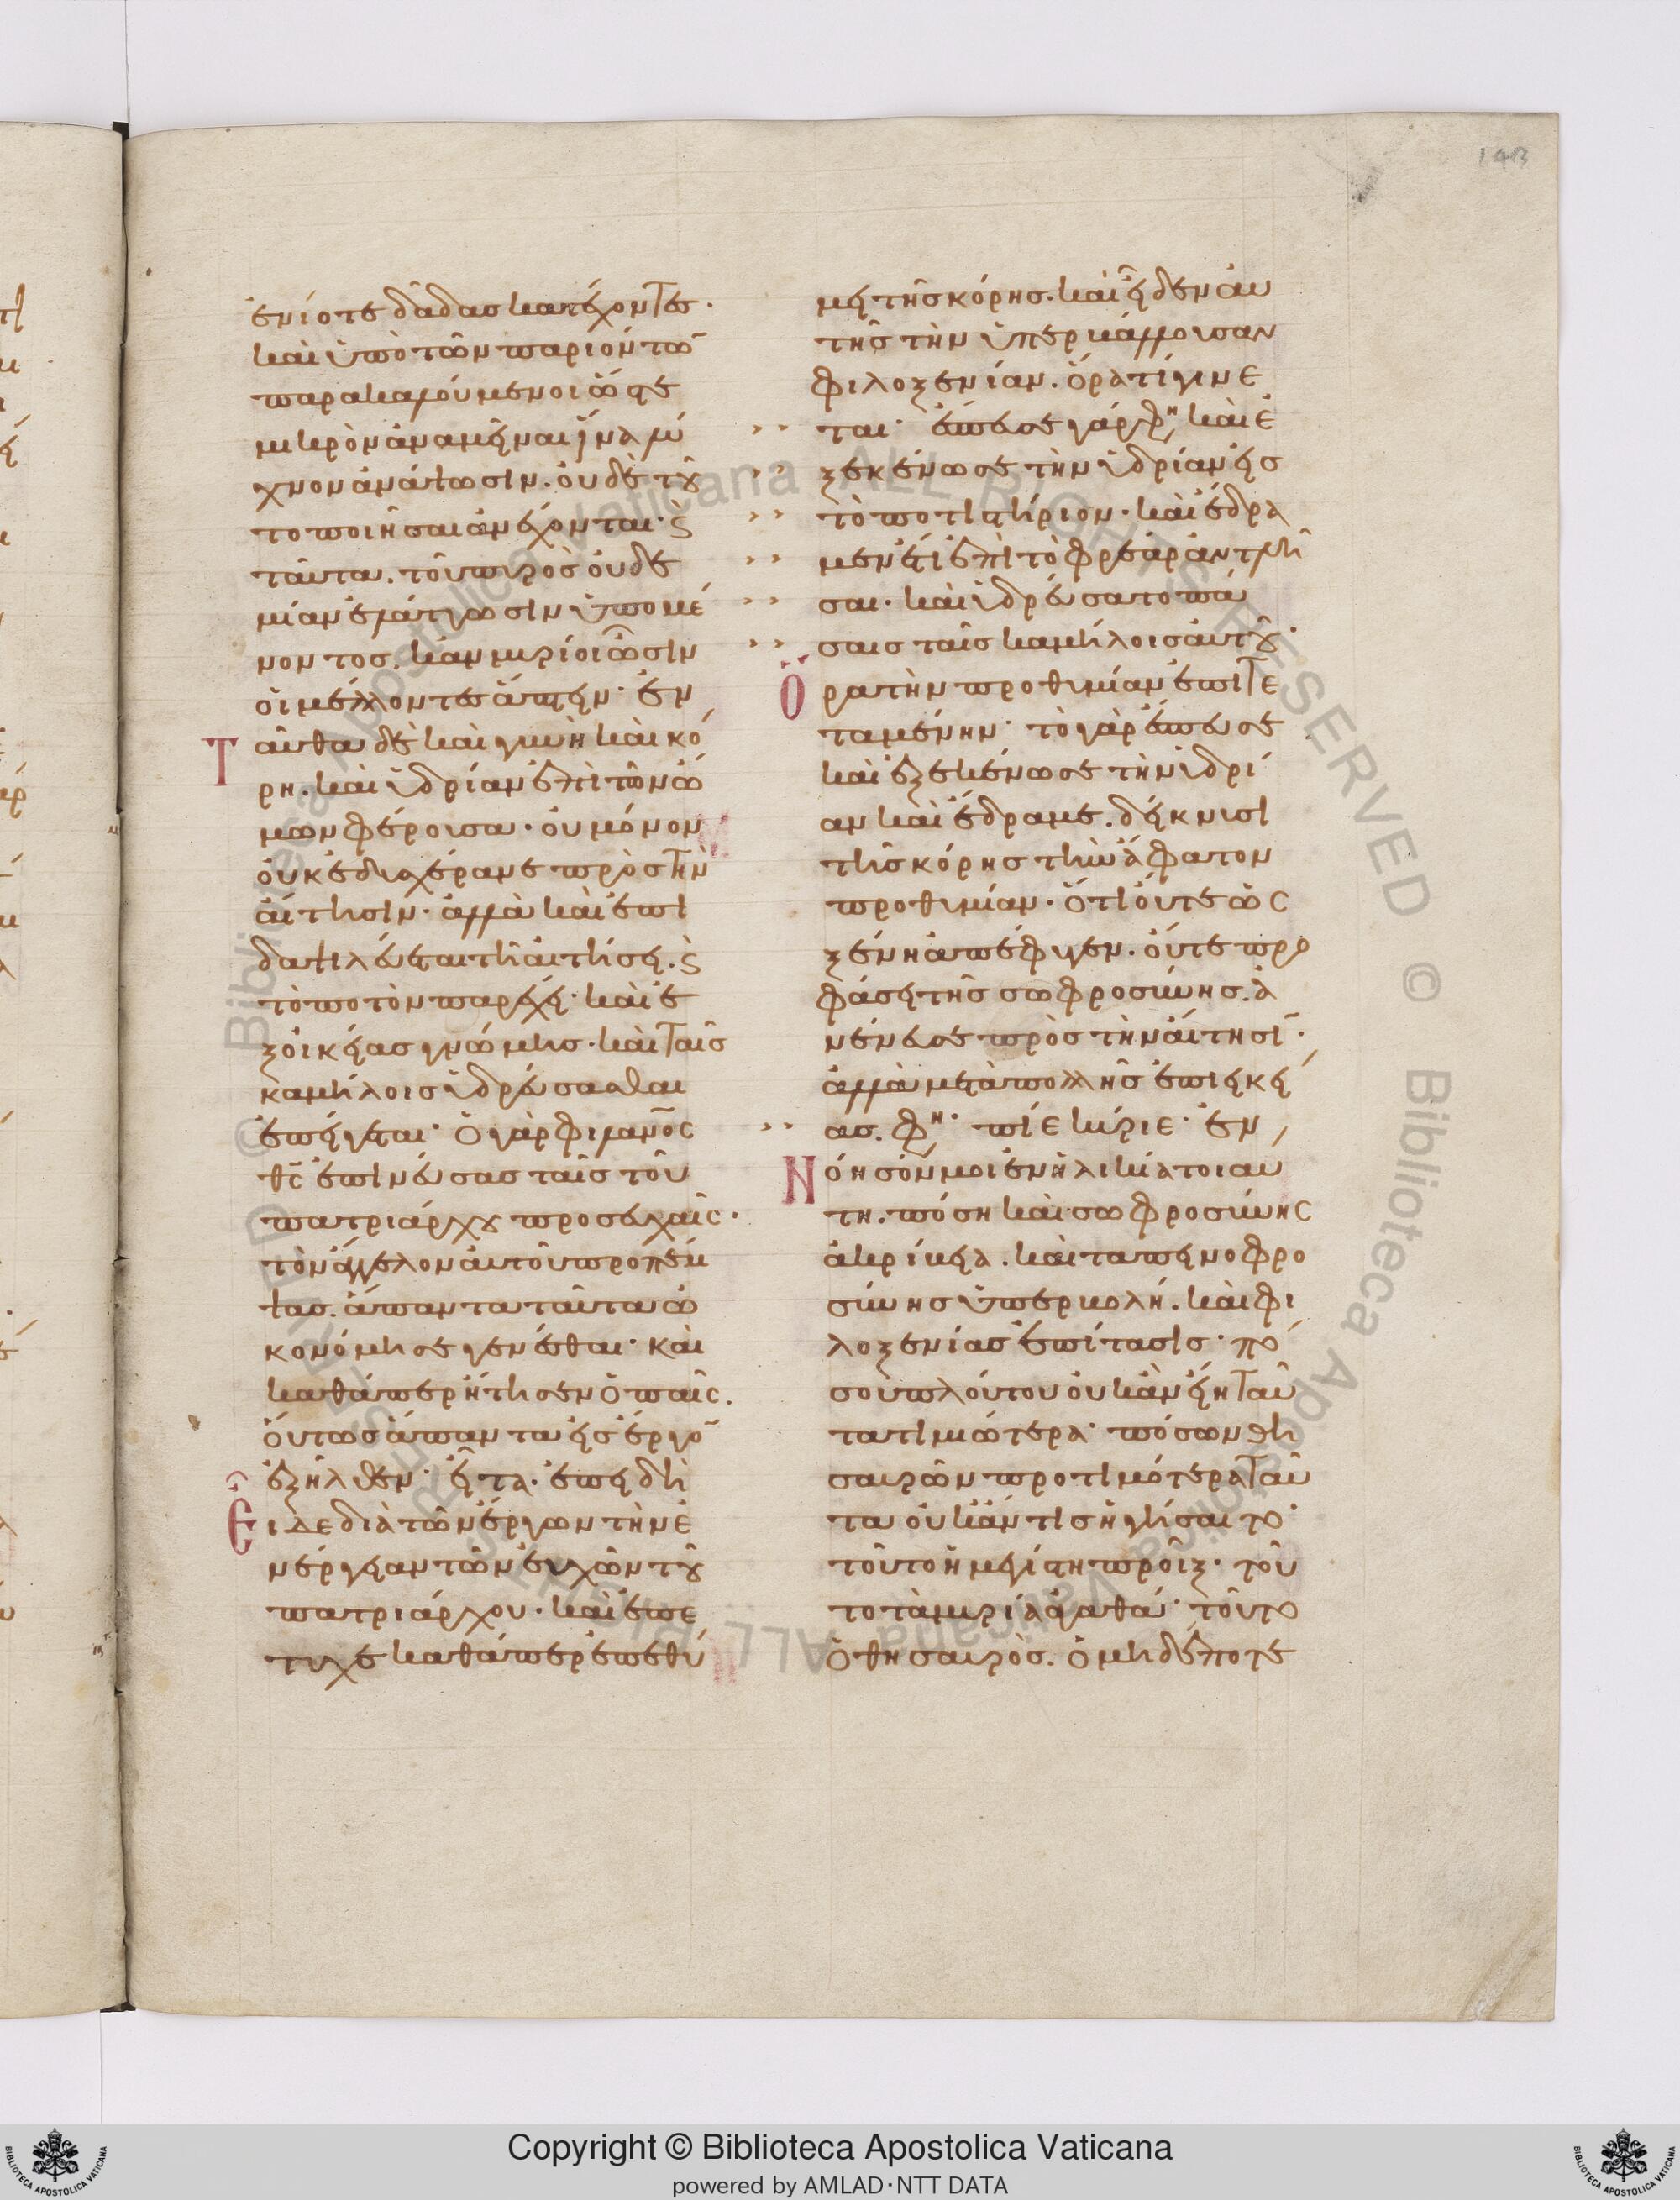 143
ἐνίοτε δᾷδας κατέχοντες·
καὶ ὑπὸ τῶν παριόντω̄
παρακαλούμενοι ὥστε
μικρὸν ἀναμεῖναι ἵνα λύ
χνον ἀνάψωσιν. οὐδὲ τοῦ
το ποιῆσαι ἀνέχονται· ϛ̀
ταῦτα. τοῦ πυρὸς οὐδε
μίαν ἐλάττωσιν ὑπομέ
νοντος. κἂν μυρίοι ὦσιν
οἱ μέλλοντες ἅπτειν· ἐν
Ταῦθα δὲ καὶ γυνὴ καὶ κό
ρη. καὶ ὑδρίαν ἐπὶ τῶν ὤ
μων φέρουσα· οὐ μόνον
οὐκ ἐδυσχέρανε πρὸς τὴν
αἴτησιν· ἀλλὰ καὶ ἐπι
δαψιλεύεται τῆ αἰτήσει. ϛ̀
τὸ ποτὸν παρέχει· καὶ ἐ
ξ οἰκείας γνώμης· καὶ ταῖς
καμήλοις ὑδρεύσασθαι
ἐπείγεται· ὁ γὰρ φιλαν̅ο̅ς
θ̅ς̅ ἐπινεύσας ταῖς τοῦ
πατριάρχου προσευχαῖς·
τὸν ἄγγελον αὐτοῦ προπέμ
ψας. ἅπαντα ταῦτα ὠ
κονόμησε γενέσθαι· καὶ
καθάπερ ἤτησεν ὁ παῖς.
οὕτως ἅπαντα εἰς ἔργο̄
ἐξῆλθεν· εἶτα. ἐπειδὴ
Εἶδε διὰ τῶν ἔργων τὴν ἐ
νέργειαν τῶν εὐχῶν τοῦ
πατριάρχου· καὶ ἐπέ
τυχε καθάπερ ἐπεθύ
μει τῆς κόρης· καὶ εἶδεν αὐ
τῆς τὴν ὑπερβάλλουσαν
φιλοξενίαν. ὅρα τί γίνε
ται· ἔσπευσε γάρ φη καὶ ἐ
ξεκένωσε τὴν ὑδρίαν εἰς
τὸ ποτιστήριον· καὶ ἔδρα
μεν ἔτι ἐπὶ τὸ φρέαρ ἀντλῆ
σαι· καὶ ὑδρεύσατο πά
σαις ταῖς καμήλοις αὐτοῦ·
Ὅρα τὴν προθυμίαν ἐπιτε
ταμένην· τὸ γὰρ ἔσπευσε
καὶ ἐξεκένωσε τὴν ὑδρί
αν καὶ ἔδραμε. δείκνυσι
τῆς κόρης τὴν ἄφατον
προθυμίαν· ὅτι οὔτε ὡς
ξένη ἀπέφυγεν. οὔτε προ
φάσει τῆς σωφροσύνης. ἀ
νένευσε πρὸς τὴν αἴτησῑ·
ἀλλὰ μετὰ πολλῆς ἐπιεικεί
ας. φη· πίε κύριε· ἐν
Νόησόν μοι ἐν ἡλικία τοιαύ
τη. πόση καὶ σωφροσύνης
ἀκρίβεια. καὶ ταπεινοφρο
σύνης ὑπερβολή. καὶ φι
λοξενίας ἐπίτασις· πό
σου πλούτου οὐκ ἂν εἴη ταῦ
τα τιμιώτερα· πόσων θη
σαυρῶν προτιμότερα ταῦ
τα οὐκ ἄν τις ἡγήσαιτο·
τοῦτο ἡ μεγίστη προῖξ· τοῦ
το τὰ μυρία ἀγαθά· τοῦτο
ὁ θησαυρὸς. ὁ μηδέποτε
Copyright © Biblioteca Apostolica Vaticana
powered by AMLAD·NTT DATA